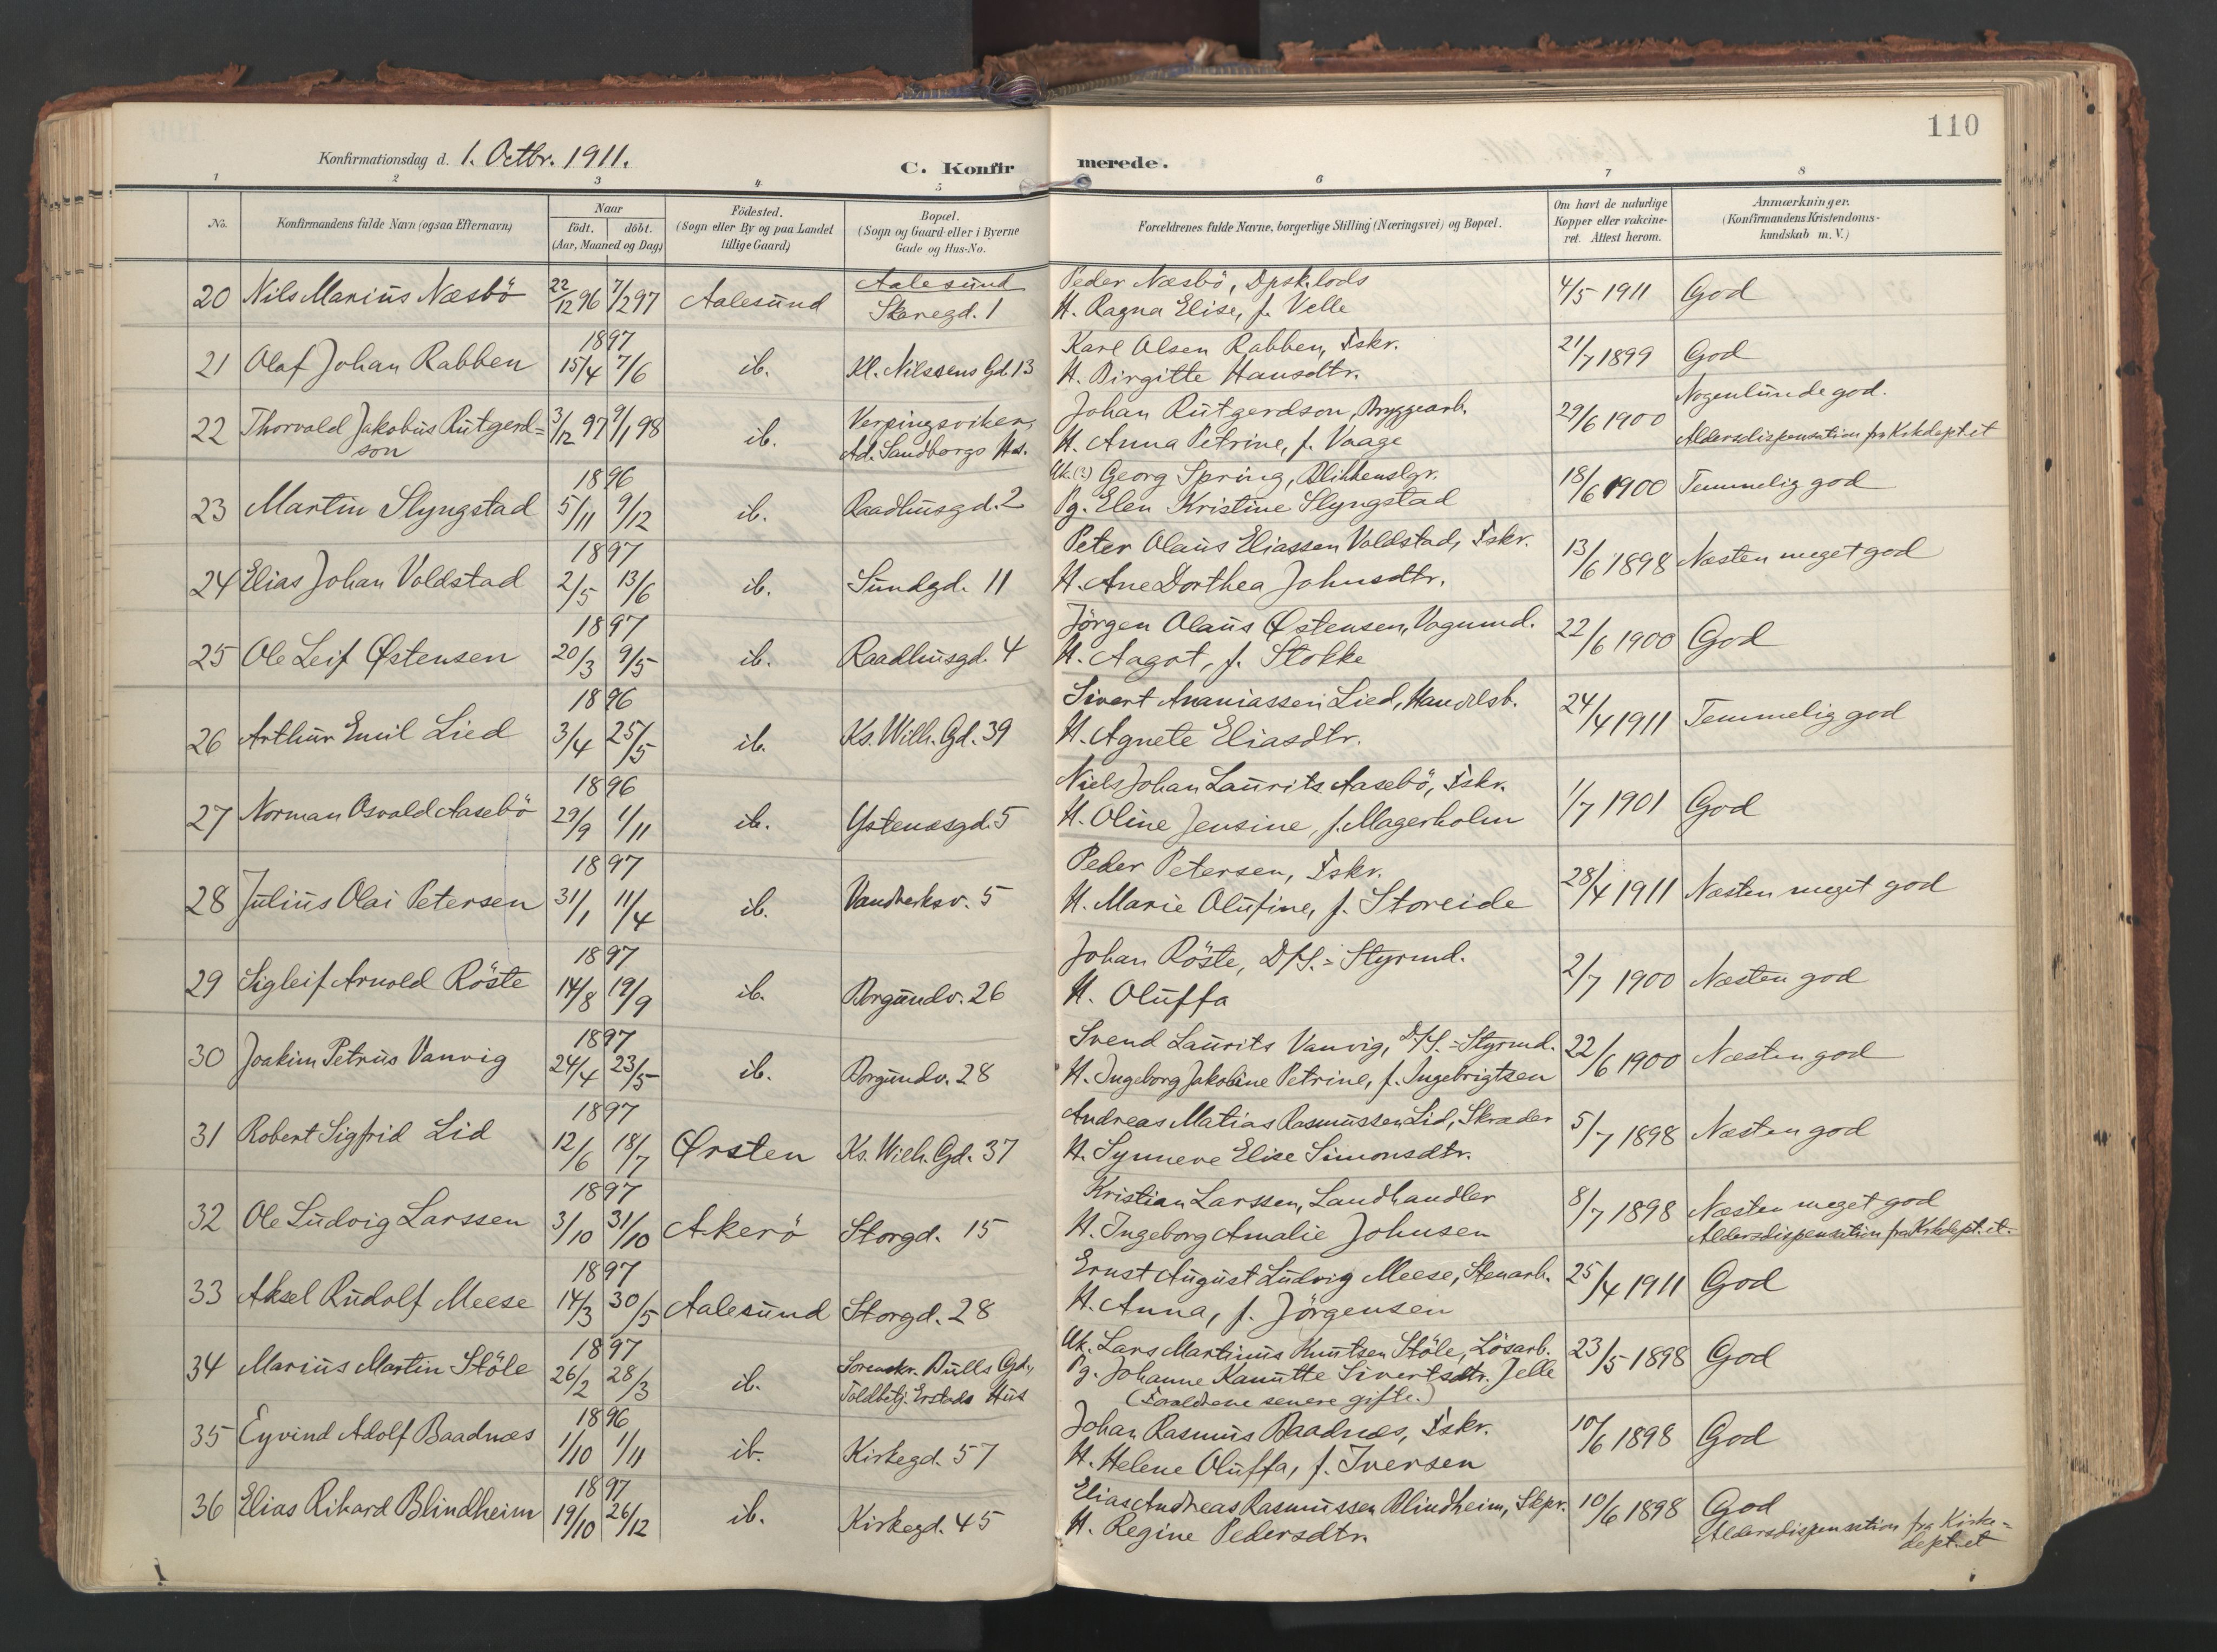 110
Konfirmationsdag d. 1. Octbr. 1911.
C. Konfirmerede.
1 2 3 4 5 6 7 8
No.
Konfirmandens fulde Navn (ogsaa Efternavn)
Naar
födt. döbt.
(Aar, Maaned og Dag)
Födested.
(Sogn eller By og paa Landet
tillige Gaard)
Bopæl.
(Sogn og Gaard eller i Byerne
Gade og Hus-No.
Forældrenes fulde Navne, borgerlige Stilling (Næringsvei) og Bopæl.
Om havt de naturlige
Kopper eller vakcine-
ret. Attest herom.
Anmærkninger.
(Konfirmandens Kristendoms-
kundskab m. V.)
20 Nils Marius Næsbö 22/12 96 7/2 97 Aalesund Aalesund
Skaregd. 1
Peder Næsbö, Dpsk.lods
H. Ragna Elise, f. Velle
4/5 1911 God
1897
21 Olaf Johan Rabben 15/4 7/6 ib. Kl. Nilssens Gd. 13
Karl Olsen Rabben, Fskr.
H. Birgitte Hansdtr.
21/7 1899 God
22 Thorvald Jakobus Rutgerd=
son
3/12 97 9/1 98 ib. Verpingsviken,
Ad. Sandborgs Hus.
Johan Rutgerdson, Bryggearb.
H. Anna Petrine, f. Vaage
29/6 1900 Nogenlunde god.
Aldersdispensation fra Kirkedept.et
1896
23 Martin Slyngstad 5/11 9/12 ib. Raadhusgd. 2
Uk. (?) Georg Spring, Blikkenslgr.
Pg. Elen Kristine Slyngstad
18/6 1900 Temmelig god
1897
24 Elias Johan Valdstad 2/5 13/6 ib. Sundgd. 11
Peter Olaus Eliassen Valdstad, Fskr.
H. Ane Dorthea Johnsdtr.
13/6 1898 Næsten meget god
1897
25 Ole Leif Østensen 20/3 9/5 ib. Raadhusgd. 4
Jörgen Olaus Østensen, Vognmd.
H. Aagot, f. Stokke
22/6 1900 God
1896
26 Arthur Emil Lied 3/4 25/5 ib. Ks. Wilh. Gd. 39
Sivert Ananiassen Lied, Handelsb.
H. Agnete Eliasdtr.
24/4 1911 Temmelig god
1896
27 Norman Osvald Aasebö 29/9 1/11 ib. Ystenæsgd. 5
Niels Johan Laurits Aasebö, Fskr.
H. Oline Jensine, f. Magerholm
1/7 1901 God
1897
28 Julius Olai Petersen 31/1 11/4 ib. Vandverksv. 5
Peder Petersen, Fskr.
H. Marie Olufine, f. Storeide
28/4 1911 Næsten meget god
1897
29 Sigleif Arnold Röste 14/8 19/9 ib. Borgundv. 26
Johan Röste, D/S.=Styrmd.
H. Oluffa
2/7 1900 Næsten god
1897
30 Joakim Petrus Vanvig 24/4 23/5 ib. Borgundv. 28
Svend Laurits Vanvig, D/S.=Styrmd.
H. Ingeborg Jakobine Petrine, f. Ingebrigtsen
22/6 1900 Næsten god
1897
31 Robert Sigfrid Lid 12/6 18/7 Ørsten Ks. Wilh. Gd. 37
Andreas Matias Rasmussen Lid, Skræder
H. Synneve Elise Simonsdtr.
5/7 1898 Næsten god
1897
32 Ole Ludvig Larssen 3/10 31/10 Akerö Storgd. 15
Kristian Larssen, Landhandler
H. Ingeborg Amalie Johnsen
8/7 1898 Næsten meget god
Aldersdispensation fra Kirkedept.et.
1897
33 Aksel Rudolf Meese 14/3 30/5 Aalesund Storgd. 28
Ernst August Ludvig Meese, Stenarb.
H. Anna, f. Jörgensen
25/4 1911 God
1897
34 Marius Martin Stöle 26/2 28/3 ib. Sorenskr. Bulls Gd.,
Toldbetj. Erstads Hus
Uk. Lars Martinus Knutsen Stöle, Lösarb.
Pg. Johanne Kanutte Sivertsdtr. Jelle
(Forældrene senere gifte.)
23/5 1898 God
1896
35 Eyvind Adolf Baadnæs 1/10 1/11 ib. Kirkegd. 57
Johan Rasmus Baadnæs, Fskr.
H. Helene Oluffa, f. Iversen
10/6 1898 God
1897
36 Elias Rikard Blindheim 19/10 26/12 ib. Kirkegd. 45
Elias Andreas Rasmussen Blindheim, Skpr.
H. Regine Pedersdtr.
10/6 1898 God
Aldersdispensation fra Kirke=
dept.et